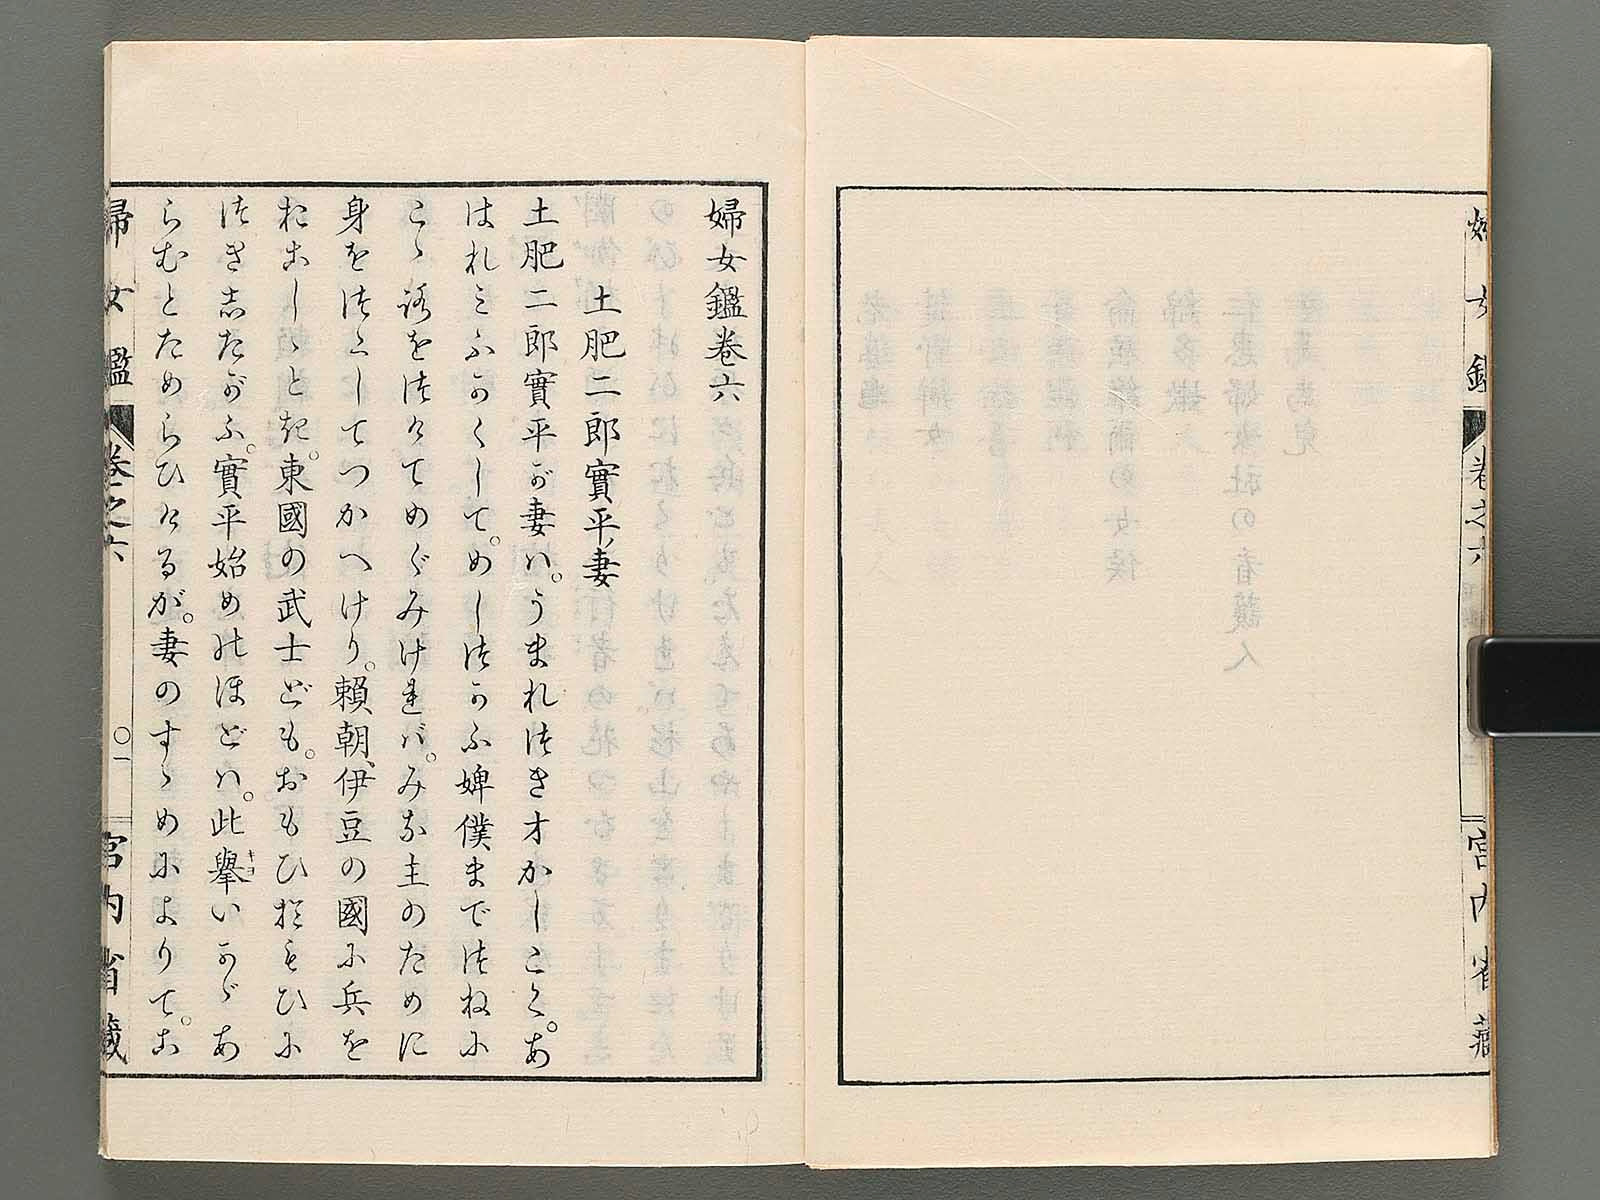 婦女鑑
卷之六
宮內省藏
婦女鑑卷六
土肥二郎實平妻
土肥二郎實平が妻ハ。うまれつき才かしこく。あ
はれミふかくして。めしつかふ婢僕までつねに
こゝろをつけてめぐみければ。みな主のために
身をつくしてつかへけり。賴朝、伊豆の國に兵を
おこしゝとき。東國の武士ども。おもひおもひに
つきしたがふ。實平始めのほどハ。此擧いかゞあ
キヨ
らむとためらひけるが。妻のすゝめによりて。こ
婦女鑑
卷之六
〇一
宮內省藏